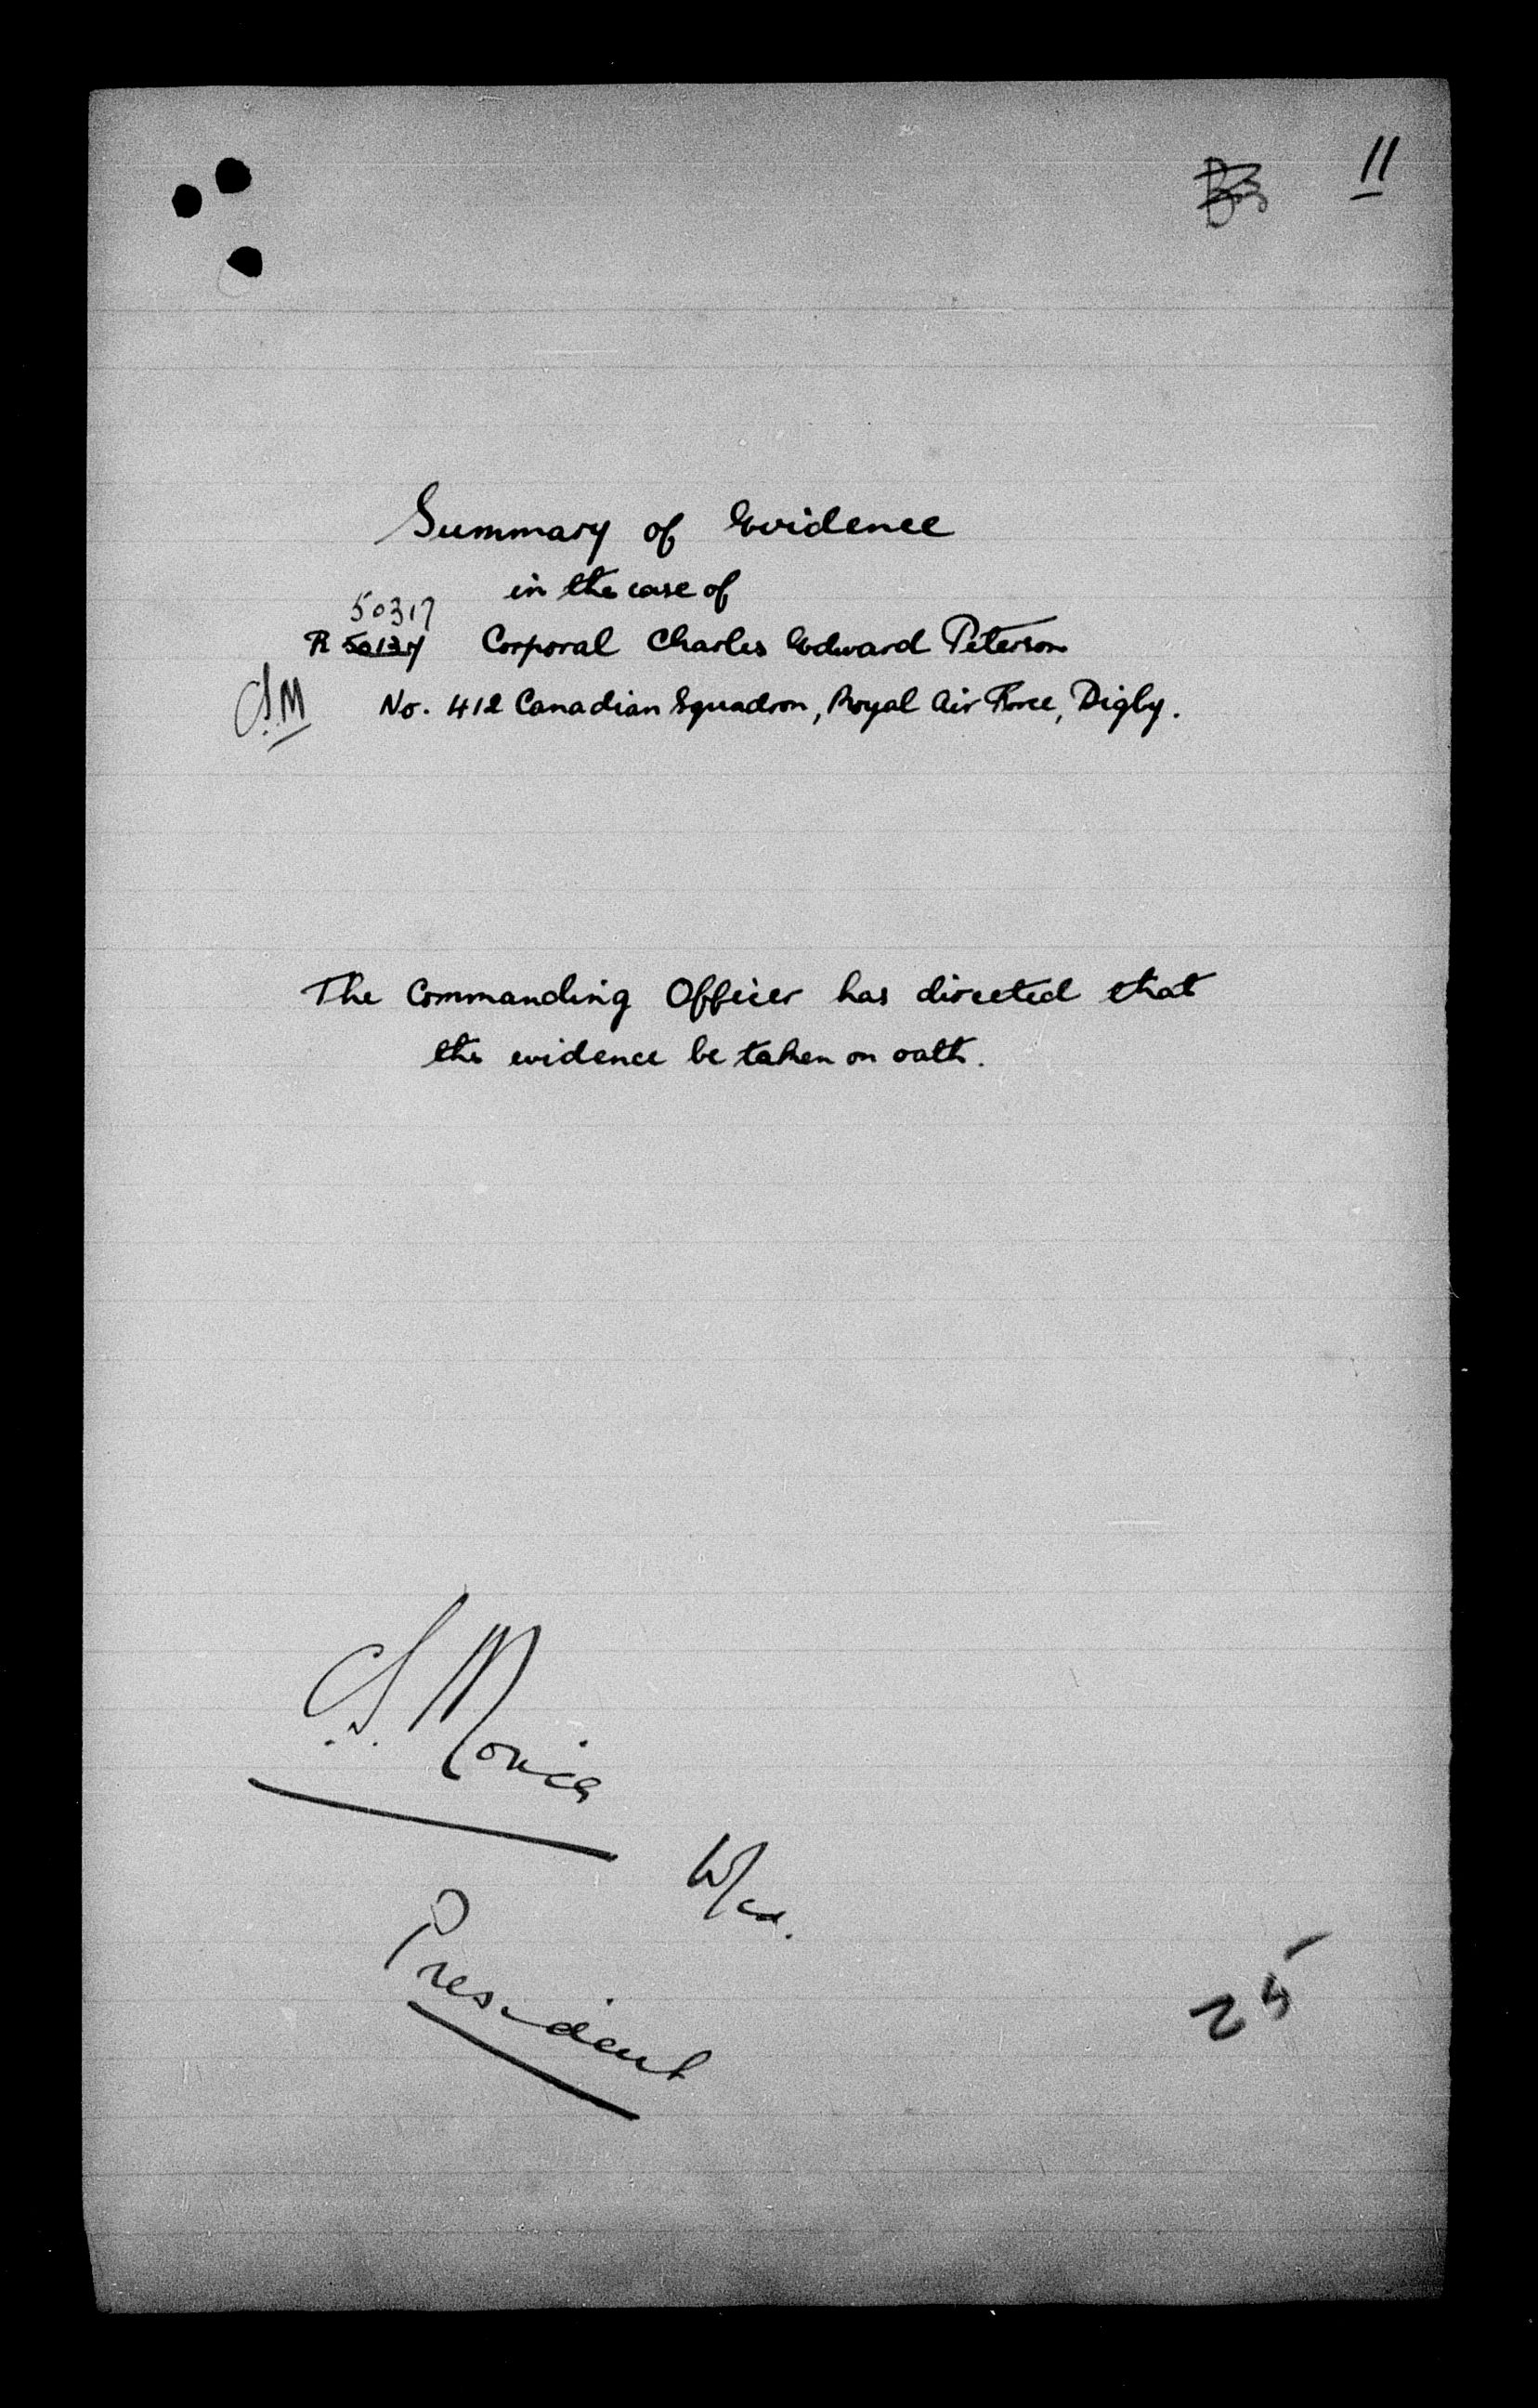 11
Summary of Evidence
in the case of
50317
R 50137 Corporal Charles Edward Peterson
C.S.M
No. 412 Canadian Squadron, Royal Air Force, Digby.
The Commanding Officer has directed that
the evidence be taken on oath.
C.S. Morice
W/Cdr.
President
25